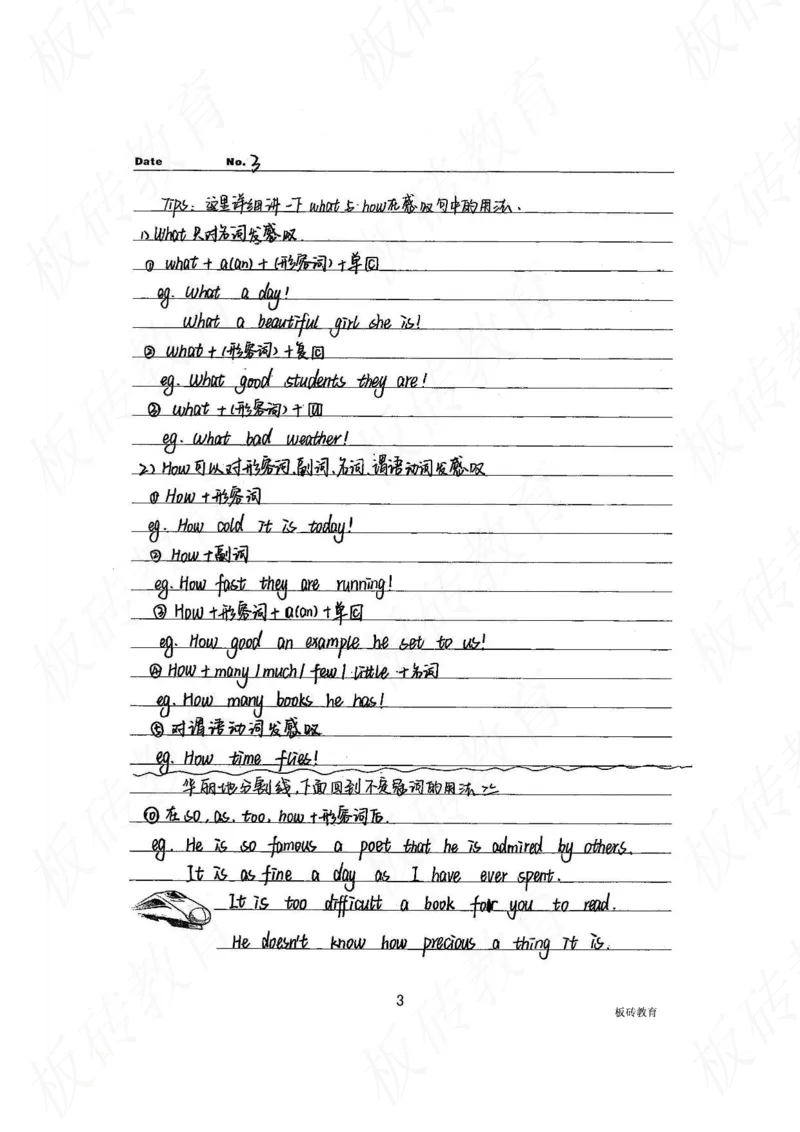 Date No. 3
Tips: 这里详细讲一下what与how在感叹句中的用法.
1) What只对名词发感叹.
① what + a(an) + (形容词) + 单[C]
eg. What a day!
What a beautiful girl she is!
② what + (形容词) + 复[C]
eg. What good students they are!
③ what + (形容词) + [U]
eg. What bad weather!
2) How可以对形容词、副词、名词、谓语动词发感叹
① How + 形容词
eg. How cold it is today!
② How + 副词
eg. How fast they are running!
③ How + 形容词 + a(an) + 单[C]
eg. How good an example he set to us!
④ How + many / much / few / little + 名词
eg. How many books he has!
⑤ 对谓语动词发感叹
eg. How time flies!
华丽地分割线,下面回到不定冠词的用法
⑩ 在so, as, too, how + 形容词后.
eg. He is so famous a poet that he is admired by others.
It is as fine a day as I have ever spent.
It is too difficult a book for you to read.
He doesn't know how precious a thing it is.
3
板砖教育